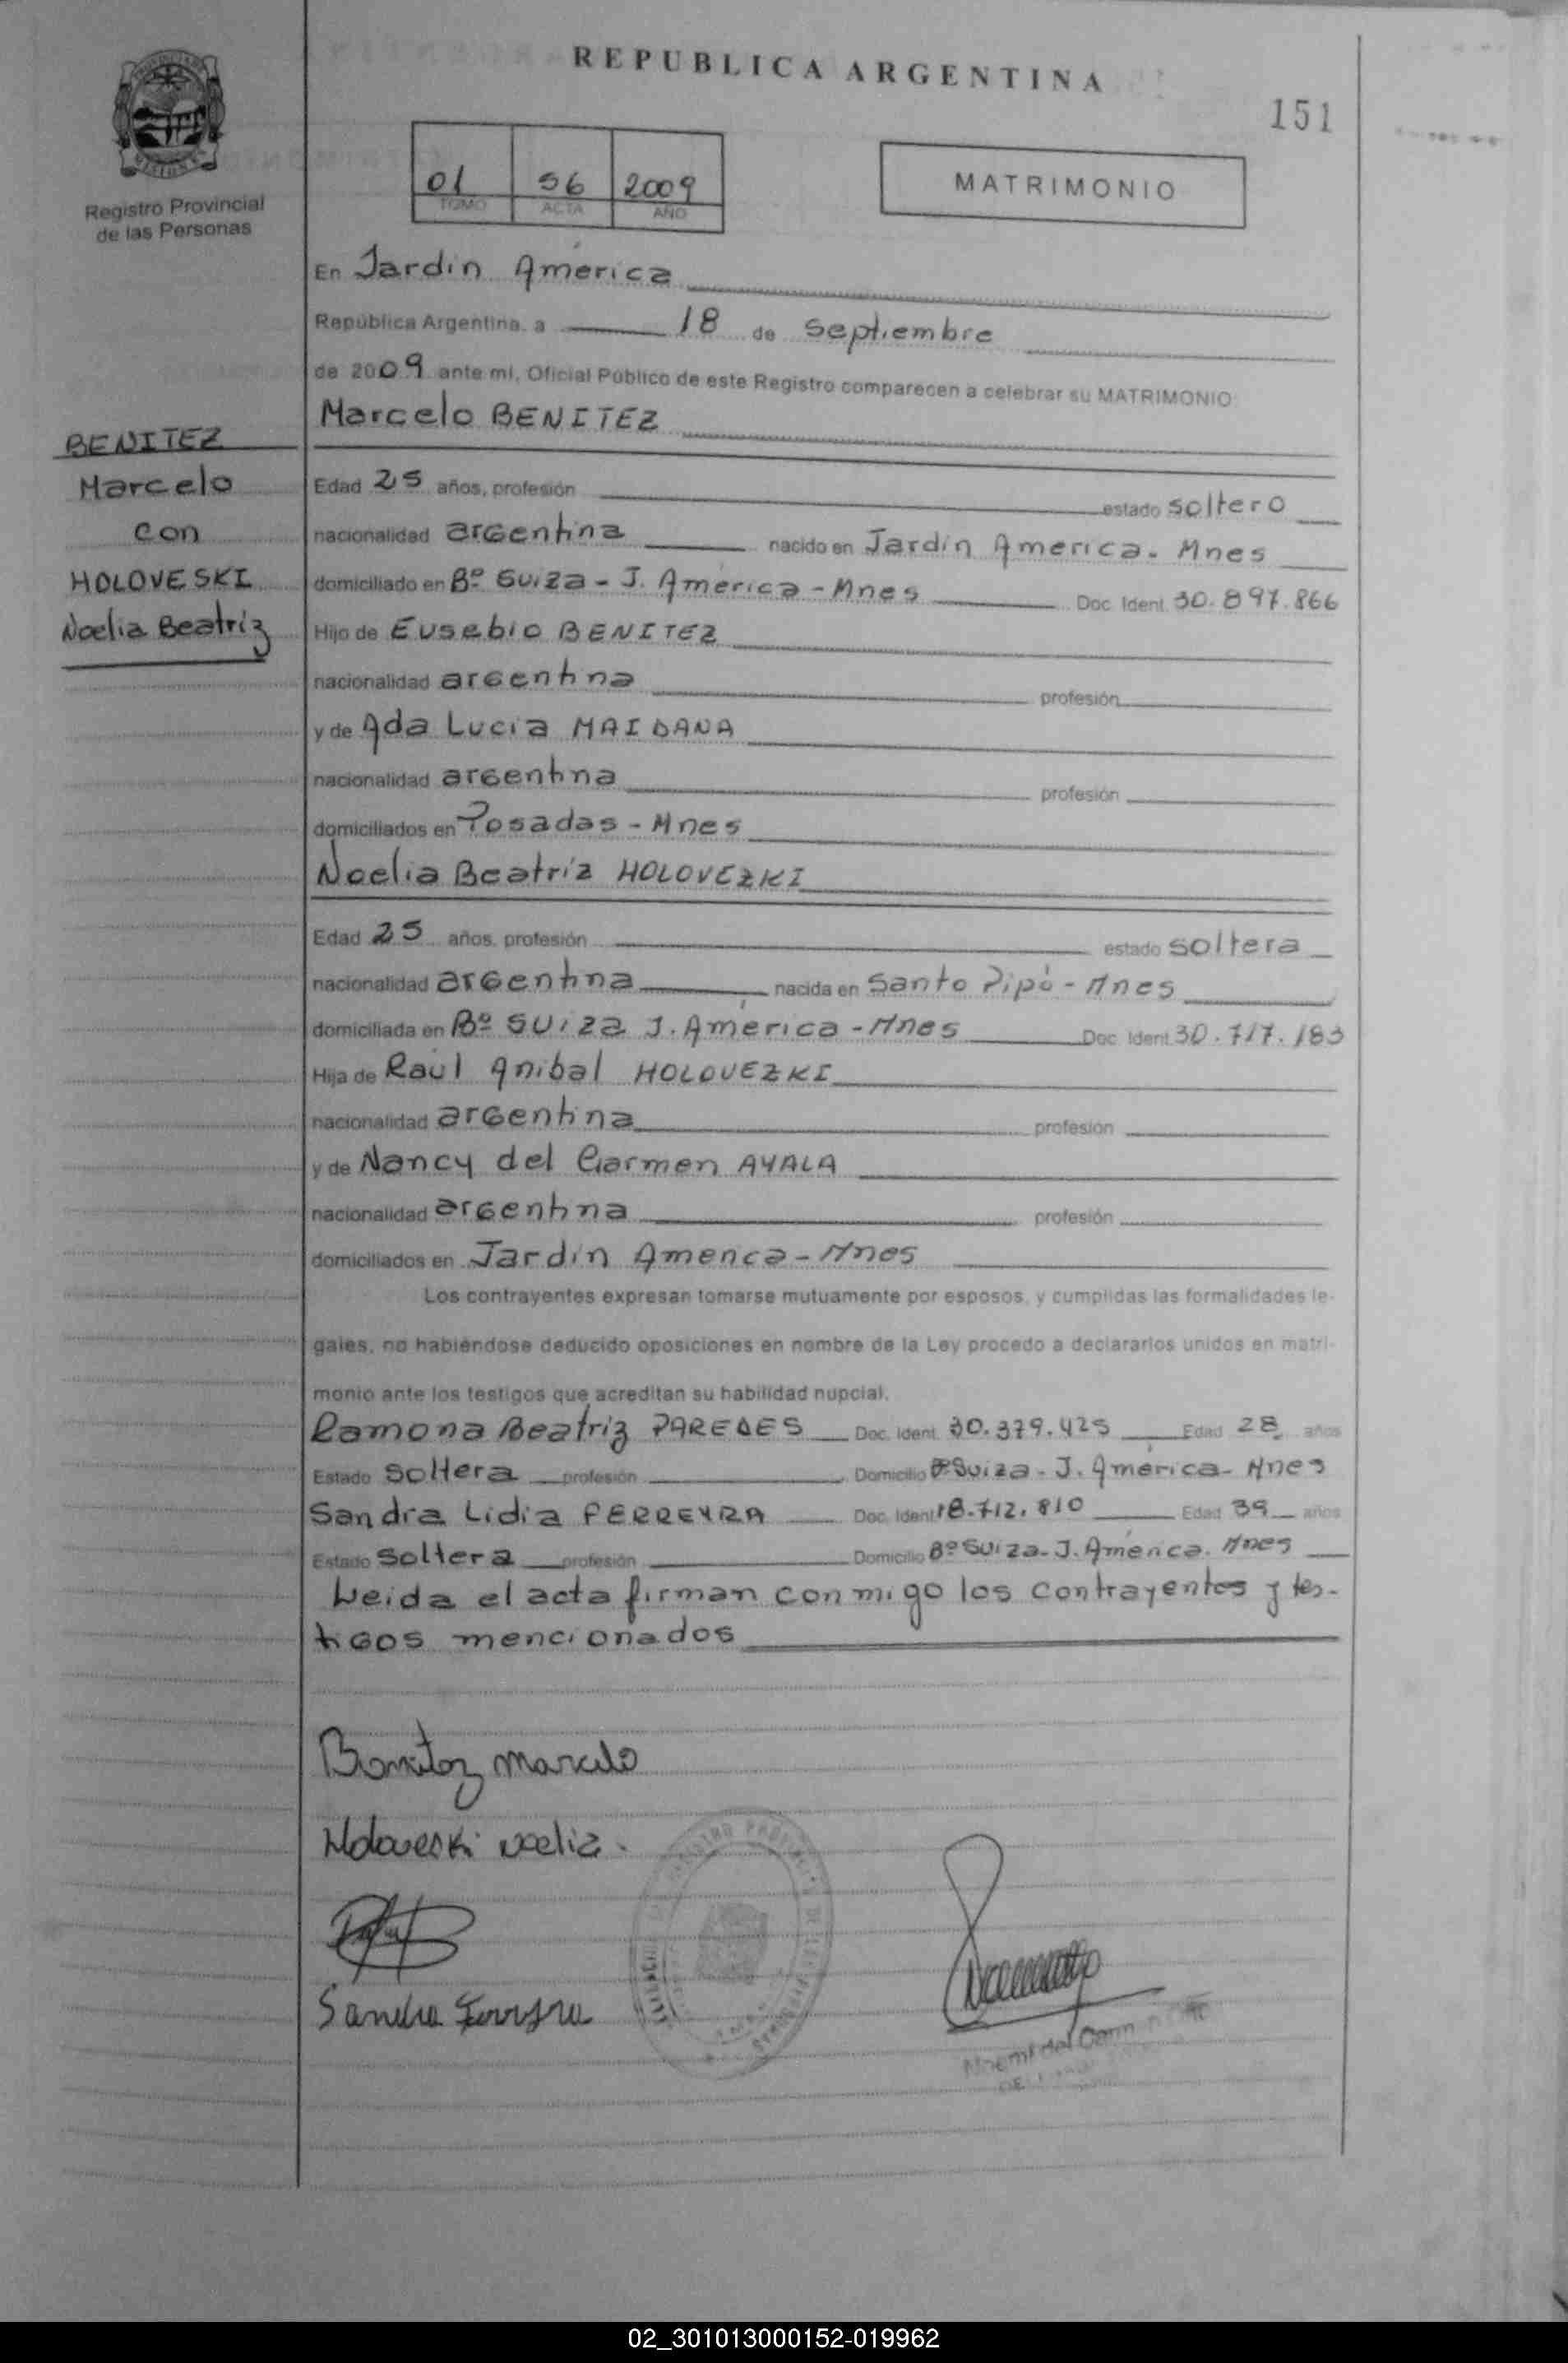 REPUBLICA ARGENTINA
151
Registro Provincial
de las Personas
01 56 2009
TOMO ACTA AÑO
MATRIMONIO
En Jardín América
República Argentina, a 18 de Septiembre
de 2009 ante mi, Oficial Público de este Registro comparecen a celebrar su MATRIMONIO
Marcelo BENITEZ
BENITEZ
Marcelo
con
HOLOVESKI
Noelia Beatriz
Edad 25 años, profesión estado soltero
nacionalidad argentina nacido en Jardín América. Mnes
domiciliado en Bº Suiza - J. América - Mnes Doc. Ident. 30.897.866
Hijo de Eusebio BENITEZ
nacionalidad argentina profesión
y de Ada Lucia MAIDANA
nacionalidad argentina profesión
domiciliados en Posadas - Mnes
Noelia Beatríz HOLOVEZKI
Edad 25 años, profesión estado soltera
nacionalidad argentina nacida en Santo Pipó - Mnes
domiciliada en Bº Suiza J. América - Mnes Doc. Ident. 30.717.183
Hija de Raúl Anibal HOLOVEZKI
nacionalidad argentina profesión
y de Nancy del Carmen AYALA
nacionalidad argentina profesión
domiciliados en Jardín America - Mnes
Los contrayentes expresan tomarse mutuamente por esposos, y cumplidas las formalidades le-
gales, no habiéndose deducido oposiciones en nombre de la Ley procedo a declararlos unidos en matri-
monio ante los testigos que acreditan su habilidad nupcial.
Ramona Beatriz PAREDES Doc. Ident. 30.379.425 Edad 28 años
Estado soltera profesión Domicilio Bº Suiza - J. América - Mnes
Sandra Lidia FERREYRA Doc. Ident. 18.712.810 Edad 39 años
Estado soltera profesión Domicilio Bº Suiza - J. América. Mnes
Leida el acta firman conmigo los contrayentes y tes-
tigos mencionados
Benitez Marcelo
Holoveski Noelia.
Sandra Ferreyra
Noemi del Carmen
02_301013000152-019962